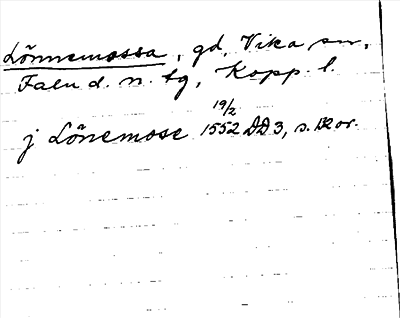 Lönnemossa, gd, Vika sn,
Falu d. n. tg, Kopp. l.
j Lönemose 19/2 1552 DD3, s. 12 or.